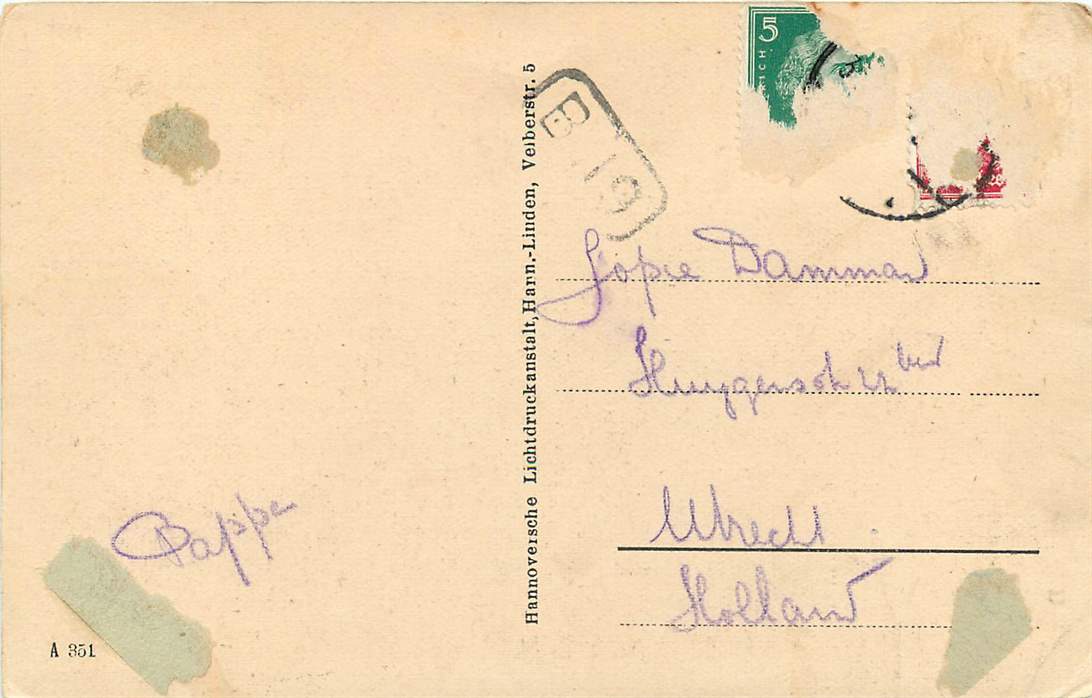 5
B 19
Hannoversche Lichtdruckanstalt, Hann.-Linden, Velberstr. 5
Jopie Damman
Huygensstr 22 bis
Utrecht
Holland
Pappa
A 351